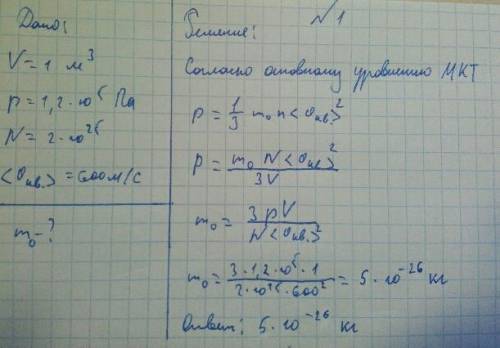 №1
Дано:
V = 1 м³
p = 1,2·10⁵ Па
N = 2·10²⁵
<υкв.> = 600 м/с
m₀ - ?
Решение:
Согласно основному уравнению МКТ
p = 1/3 m₀ n <υкв.>²
p = m₀ N <υкв.>² / 3V
m₀ = 3pV / N <υкв.>²
m₀ = 3·1,2·10⁵·1 / 2·10²⁵·600² = 5·10⁻²⁶ кг
Ответ: 5·10⁻²⁶ кг